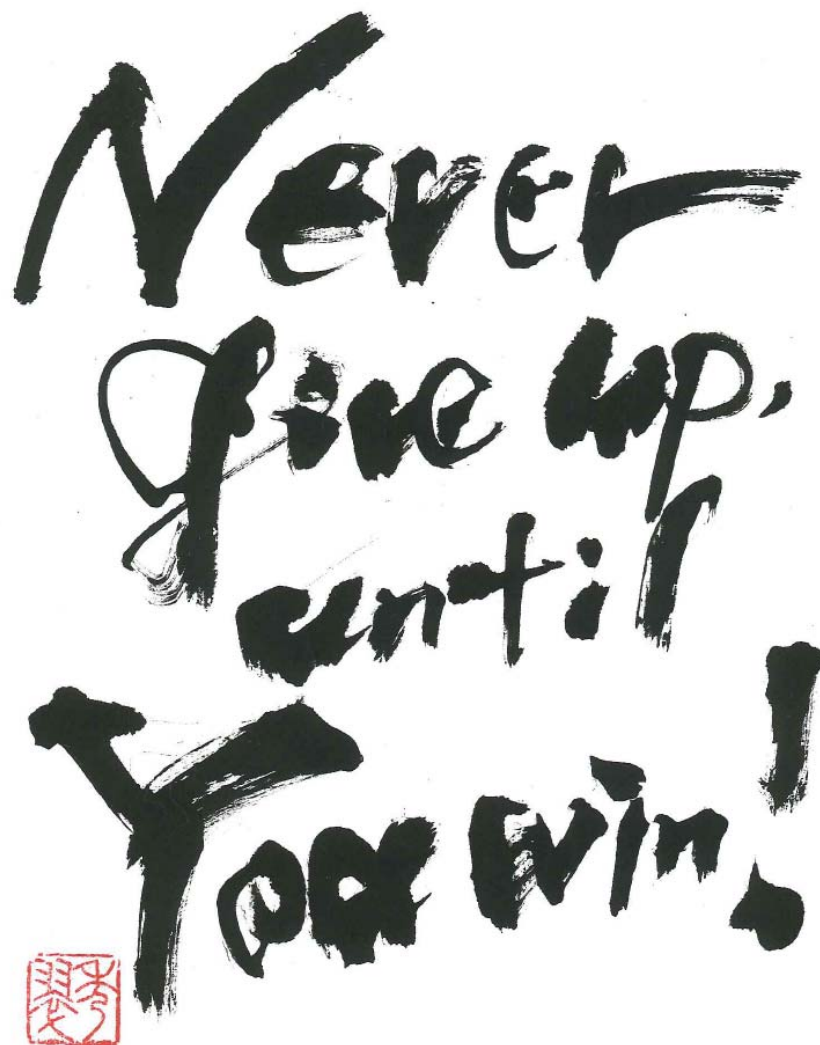 Never
give up,
until
You win!